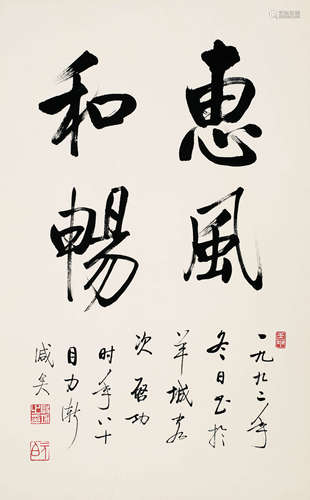 惠風
和暢
一九九二年
冬日書於
羊城客
次啟功
時年八十
目力漸
減矣